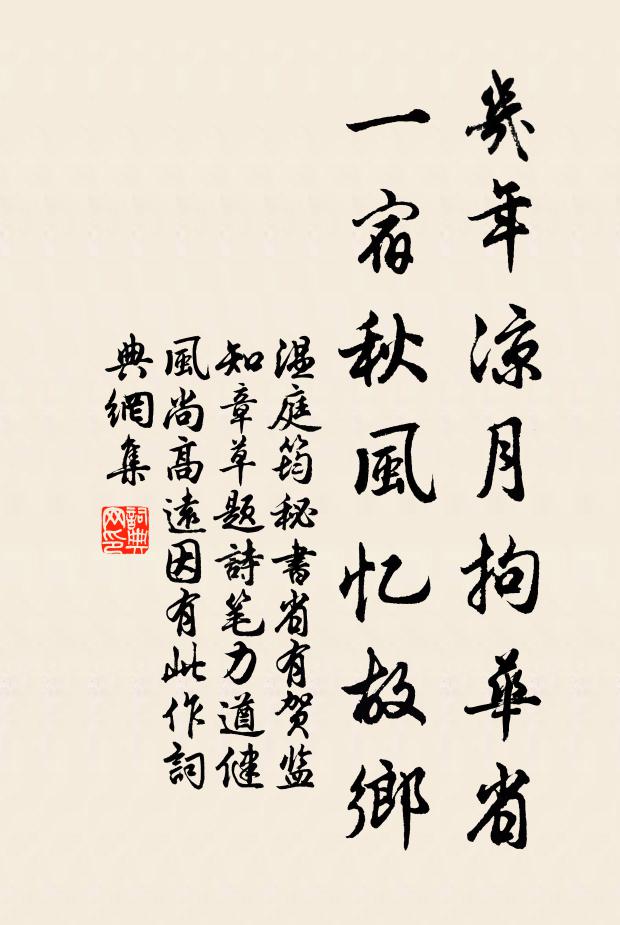 幾年涼月拘華省
一宿秋風忆故鄉
温庭筠秘書省有贺监
知章草题詩笔力遒健
風尚高遠因有此作詞
典網集
詞典
网印